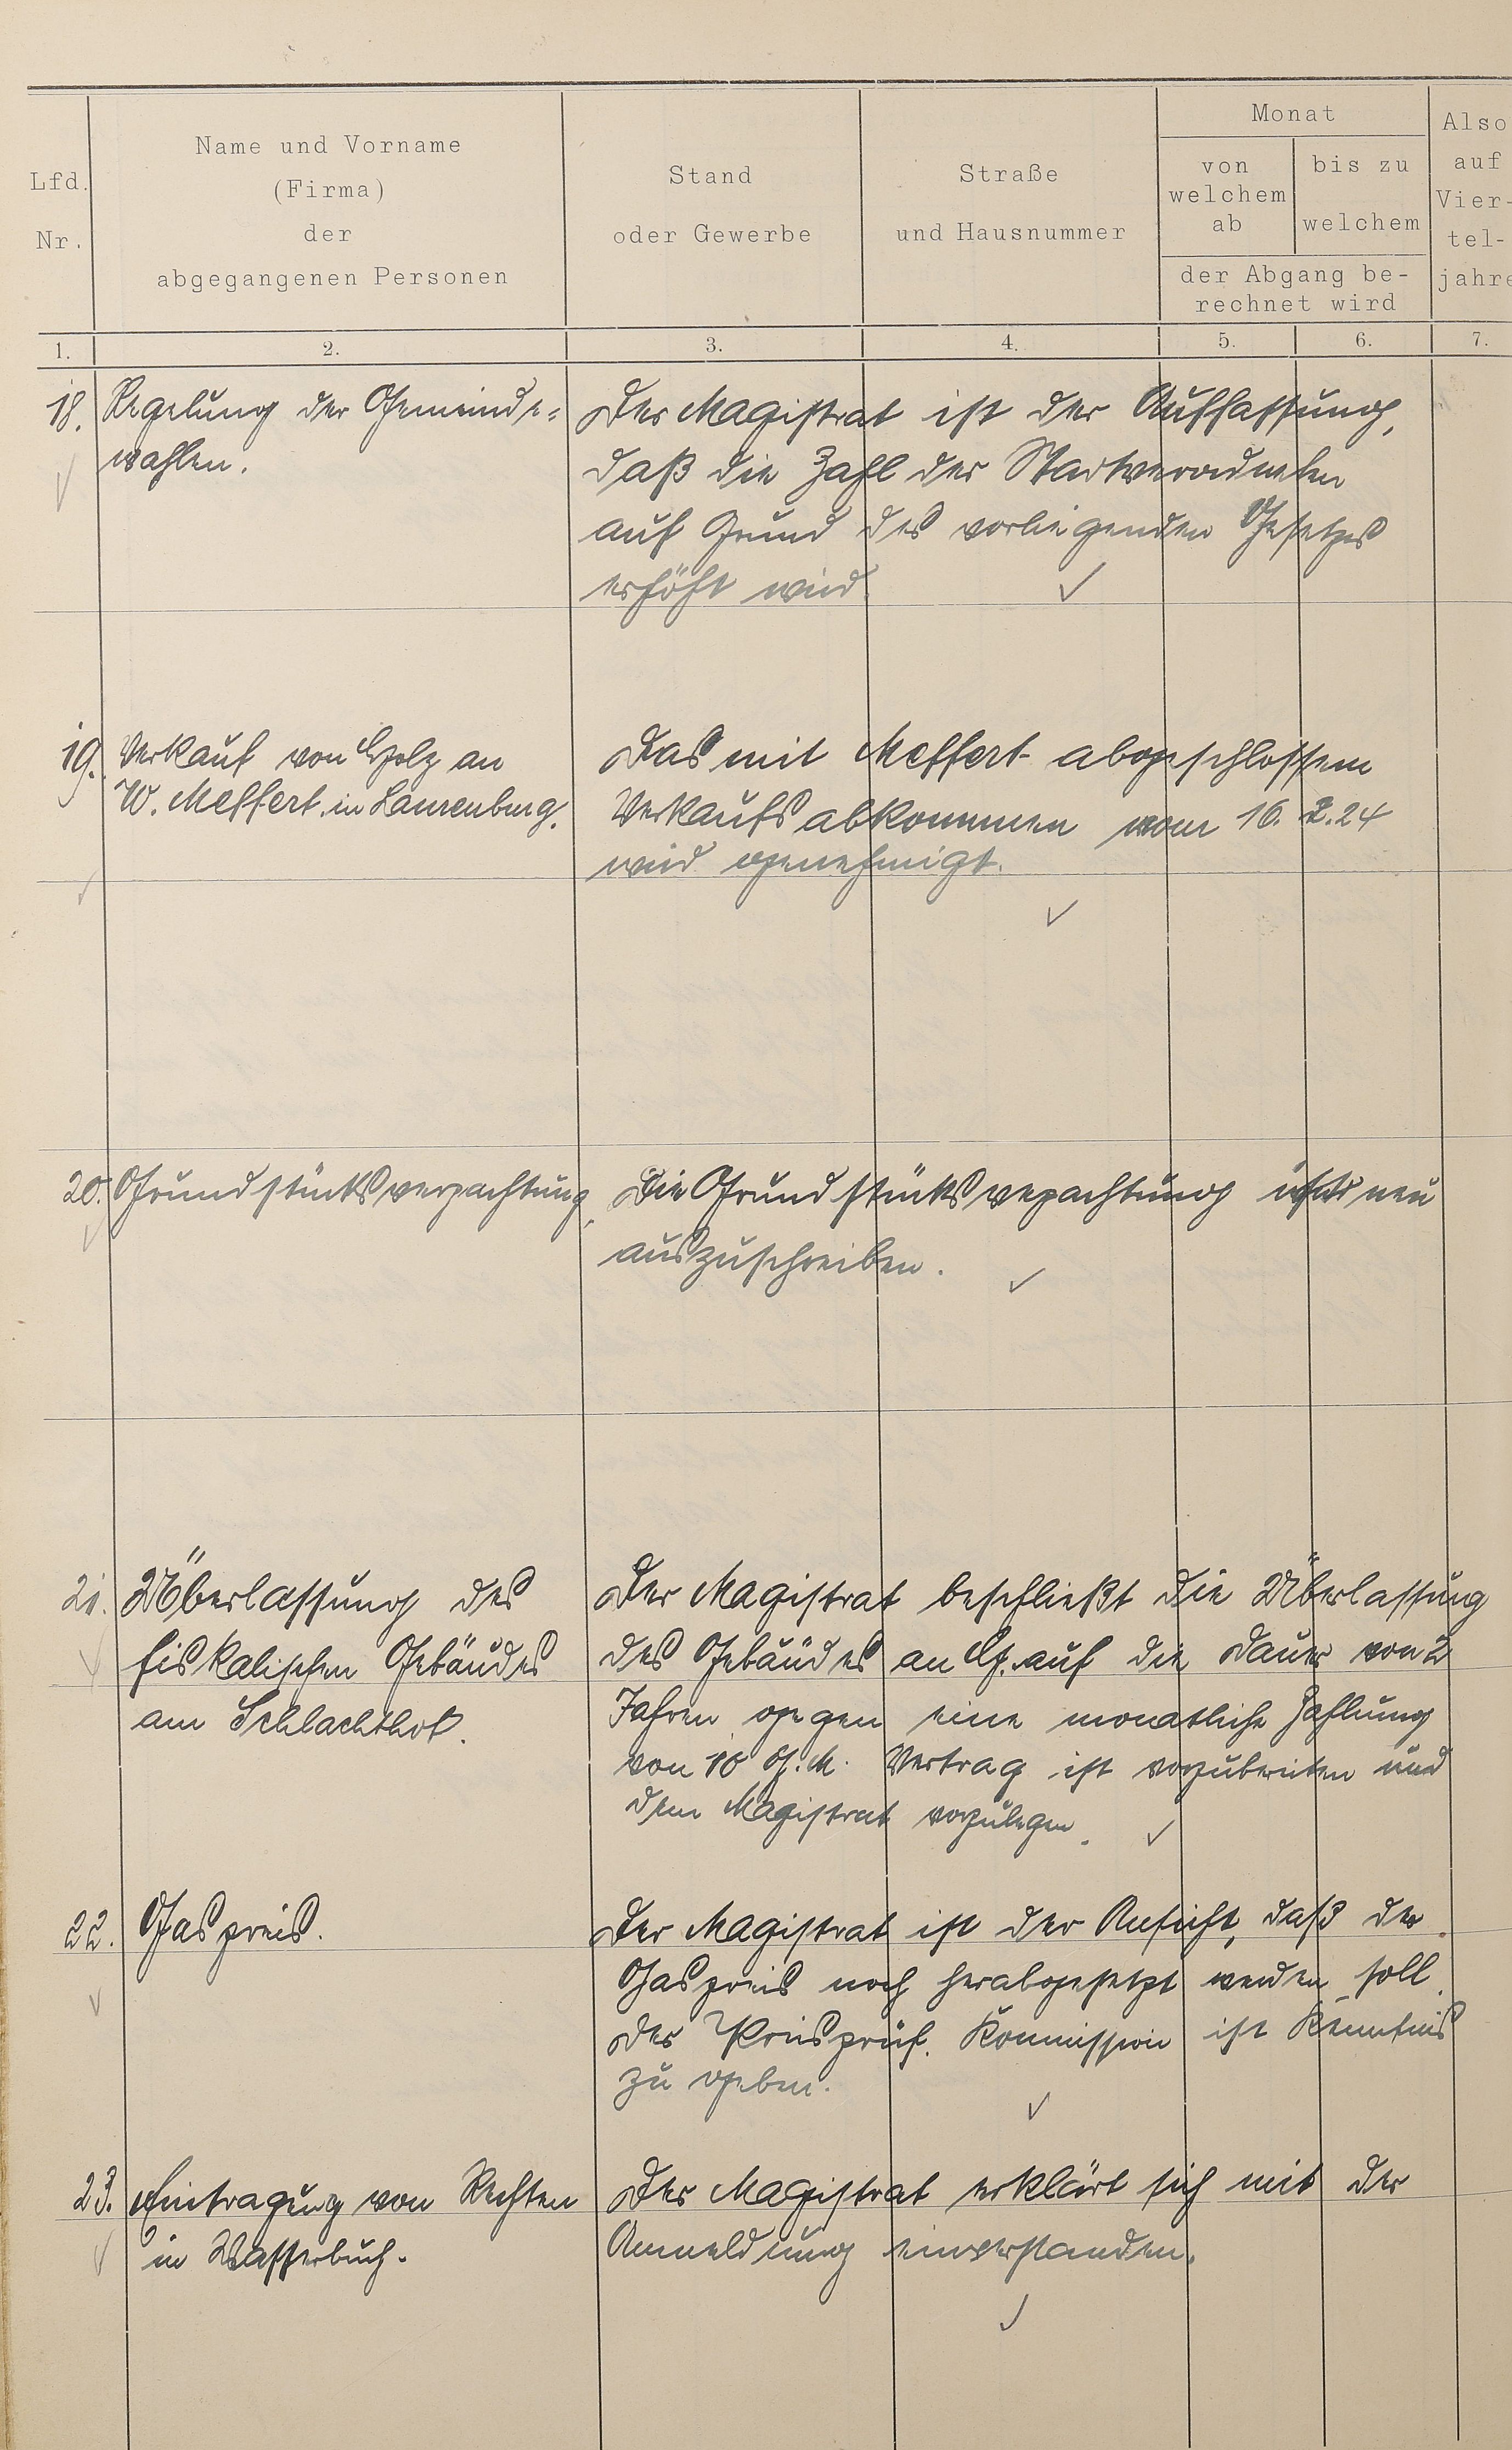 Lfd.
Nr.
Name und Vorname
(Firma)
der
abgegangenen Personen
Stand
oder Gewerbe
Straße
und Hausnummer
Monat
von
welchem
ab
bis zu
welchem
der Abgang be-
rechnet wird
Also
auf
Vier-
tel-
jahre
1. 2. 3. 4. 5. 6. 7.
18. Regelung der Gemeinde-
wahlen.
Der Magistrat ist der Auffassung,
daß die Zahl der Stadtverordneten
auf Grund des vorliegenden Gesetzes
erhöht wird.
19. Verkauf von Holz an
W. Meffert in Laurenburg.
Das mit Meffert abgeschlossene
Verkaufsabkommen vom 16. 2. 24
wird genehmigt.
20. Grundstücksverpachtung.
Die Grundstücksvepachtung ist neu
auszuschreiben.
21. Überlassung des
fiskalischen Gebäudes
am Schlachthof.
Der Magistrat beschließt die Überlassung
des Gebäudes an auf die Dauer von 2
Jahren gegen eine monatliche Zahlung
von 10 G.M. Vertrag ist vorzubereiten und
dem Magistrat vorzulegen.
22. Gaspreis.
Der Magistrat ist der Ansicht, daß der
Gaspreis noch herabgesetzt werden soll.
Der Preisprüf. Kommission ist Kenntnis
zu geben.
23. Eintragung von Rechten
in Wasserbuch.
Der Magistrat erklärt sich mit der
Anmeldung einverstanden.